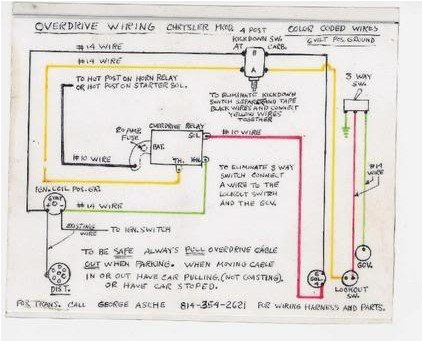 OVERDRIVE WIRING
CHRYSLER MCO.
4 POST
KICKDOWN SW.
AT CARB.
COLOR CODED WIRES
6VLT POS. GROUND
#14 WIRE
#14 WIRE
TO HOT POST ON HORN RELAY
OR HOT POST ON STARTER SOL.
A
3 WAY
SW.
TO ELIMINATE KICKDOWN
SWITCH SEPARATE AND TAPE
BLACK WIRES AND CONNECT
YELLOW WIRES
TOGETHER
20 AMP
FUSE
OVERDRIVE RELAY
SOL
#10 WIRE
BAT.
TH.
IGN.
#10 WIRE
TO ELIMINATE 3 WAY
SWITCH CONNECT
A WIRE TO THE
LOCKOUT SWITCH
AND THE GOV.
#14
WIRE
IGN. COIL POS. GR.
DIST
#14 WIRE
EXISTING
WIRE
TO IGN. SWITCH
GOV.
TO BE SAFE ALWAYS PULL OVERDRIVE CABLE
OUT WHEN PARKING. WHEN MOVING CABLE
IN OR OUT HAVE CAR PULLING, (NOT COASTING),
OR HAVE CAR STOPED.
DIST.
6
SOL
4
LOCKOUT SW.
FOR TRANS. CALL GEORGE ASCHE 814-354-2621 FOR WIRING HARNESS AND PARTS.